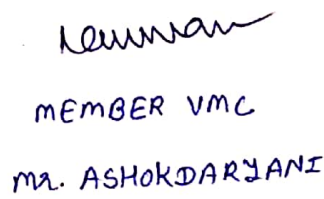 MEMBER VMC
MR. ASHOKDARYANI